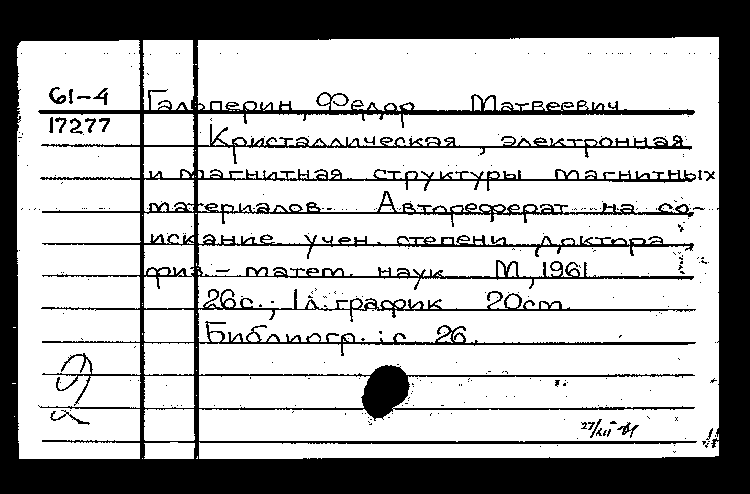 61-4 Гальперин, Федор Матвеевич.
17277
Кристаллическая, электронная
и магнитная структуры магнитных
материалов. Автореферат на со-
искание учен. степени доктора
физ.-матем. наук М., 1961
26с.; 1л. график 20cm.
Библиогр.: с 26.
2